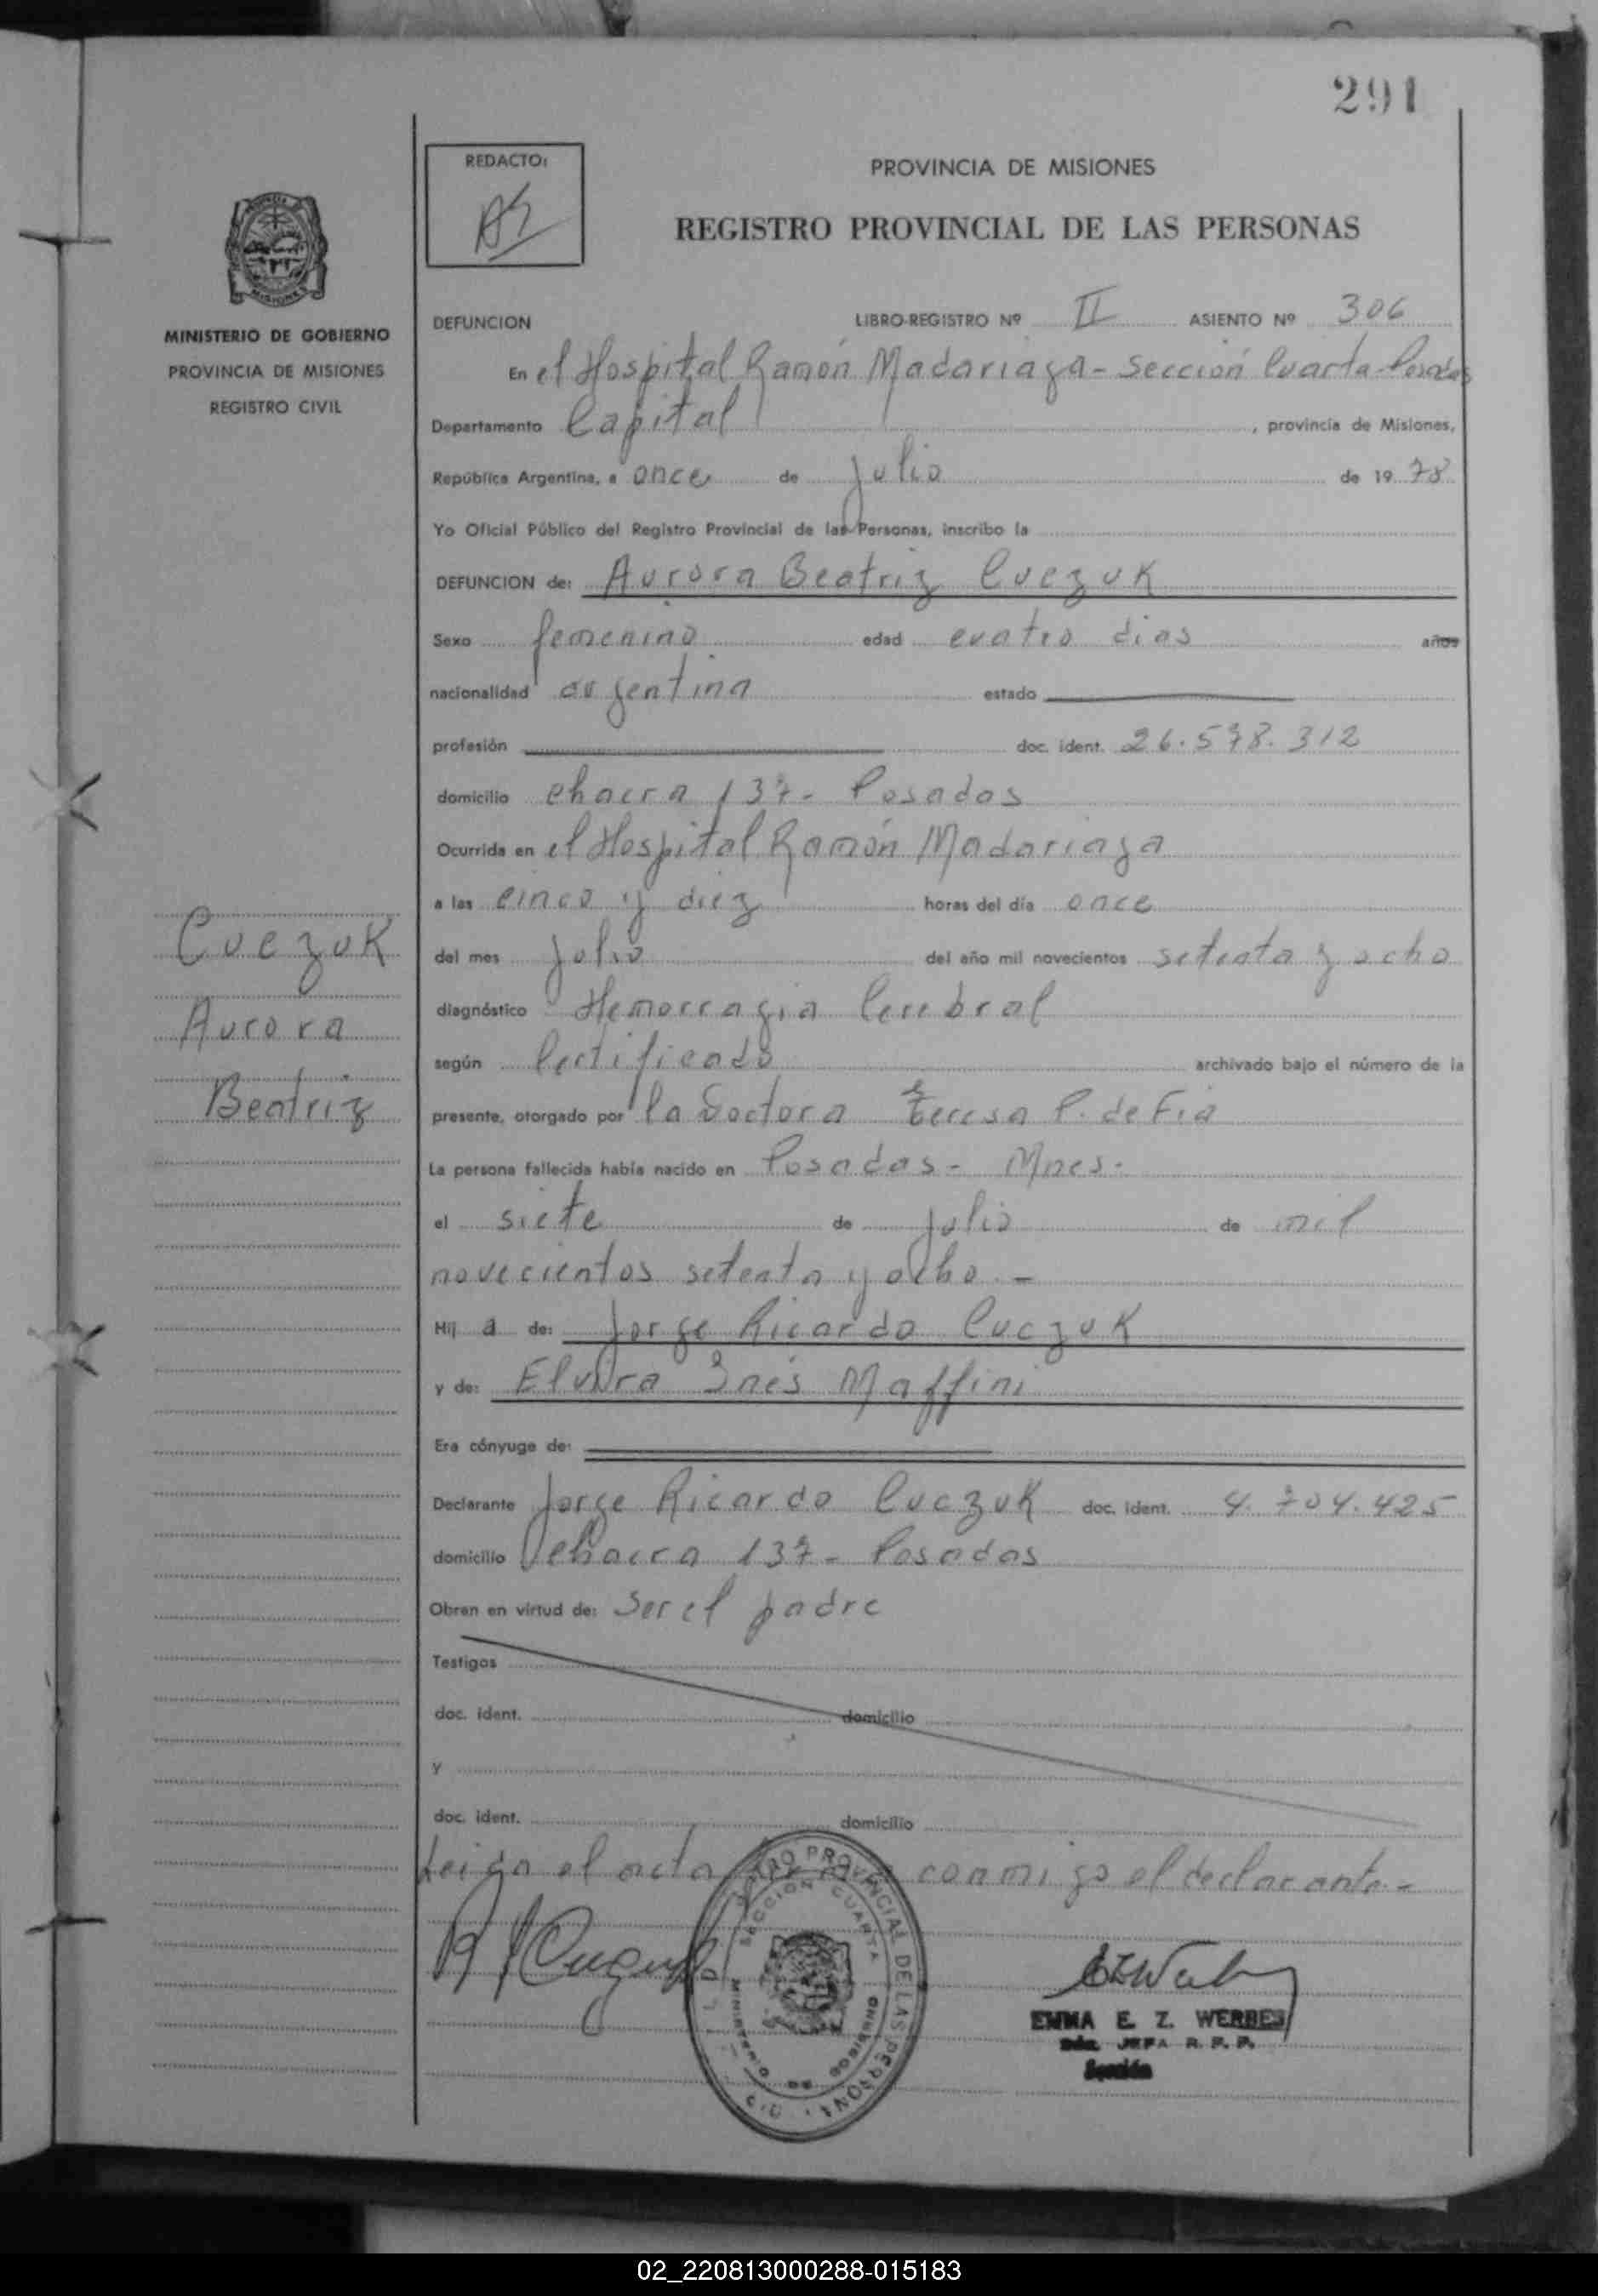 291
REDACTO:
PROVINCIA DE MISIONES
REGISTRO PROVINCIAL DE LAS PERSONAS
MINISTERIO DE GOBIERNO
PROVINCIA DE MISIONES
REGISTRO CIVIL
DEFUNCION LIBRO-REGISTRO Nº II ASIENTO Nº 306
En el Hospital Ramón Madariaga - Sección Cuarta - Posadas
Departamento Capital, provincia de Misiones,
República Argentina, a once de julio de 1978
Yo Oficial Público del Registro Provincial de las Personas, inscribo la
DEFUNCION de: Aurora Beatriz Cuczuk
Sexo femenino edad cuatro dias años
nacionalidad argentina estado
profesión doc. ident. 26.578.312
domicilio chacra 137 - Posadas
Ocurrida en el Hospital Ramón Madariaga
a las cinco y diez horas del día once
del mes julio del año mil novecientos setenta y ocho
diagnóstico Hemorragia Cerebral
según Certificado archivado bajo el número de la
presente, otorgado por la Doctora Teresa P. de Fia
La persona fallecida había nacido en Posadas - Mnes.
el siete de julio de mil
novecientos setenta y ocho. -
Hija de: Jorge Ricardo Cuczuk
y de: Elvira Inés Maffini
Era cónyuge de:
Declarante Jorge Ricardo Cuczuk doc. ident. 4.704.425
domicilio chacra 137 - Posadas
Obran en virtud de: Ser el padre
Testigos
doc. ident. domicilio
y
doc. ident. domicilio
Leida el acta conmigo el declarante. -
Cuczuk
Aurora
Beatriz
REGISTRO PROVINCIAL DE LAS PERSONAS
SECCION CUARTA
MINISTERIO DE GOBIERNO
EMMA E. Z. WERBES
JEFA R. P. P.
Sección
02_220813000288-015183